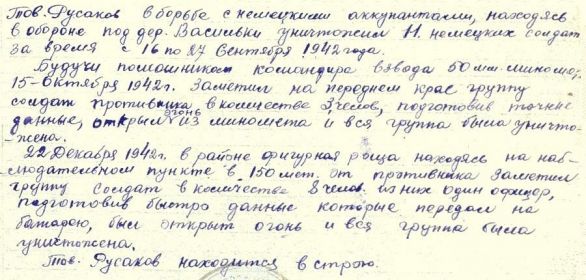 Тов. Русаков в борьбе с немецкими аккупантами, находясь
в обороне под дер. Васильки уничтожил 11 немецких солдат
за время с 16 по 27 Сентября 1942 года.
Будучи помошником командира взвода 50 мм. миномё,
15-Октября 1942 г. Заметил на переднем крае группу
солдат противника в количестве 3 челов, подготовив точные
данные, открыл огонь из миномета и вся группа была уничто-
-жена.
22 Декабря 1942 г. в районе фигурная роща находясь на наб-
людательном пункте в 150 мет. от противника Заметил
группу солдат в количестве 8 челов. из них один офицер,
подготовив быстро данные которые передал на
батарею, был открыт огонь и вся группа была
уничтожена.
Тов. Русаков находится в строю.